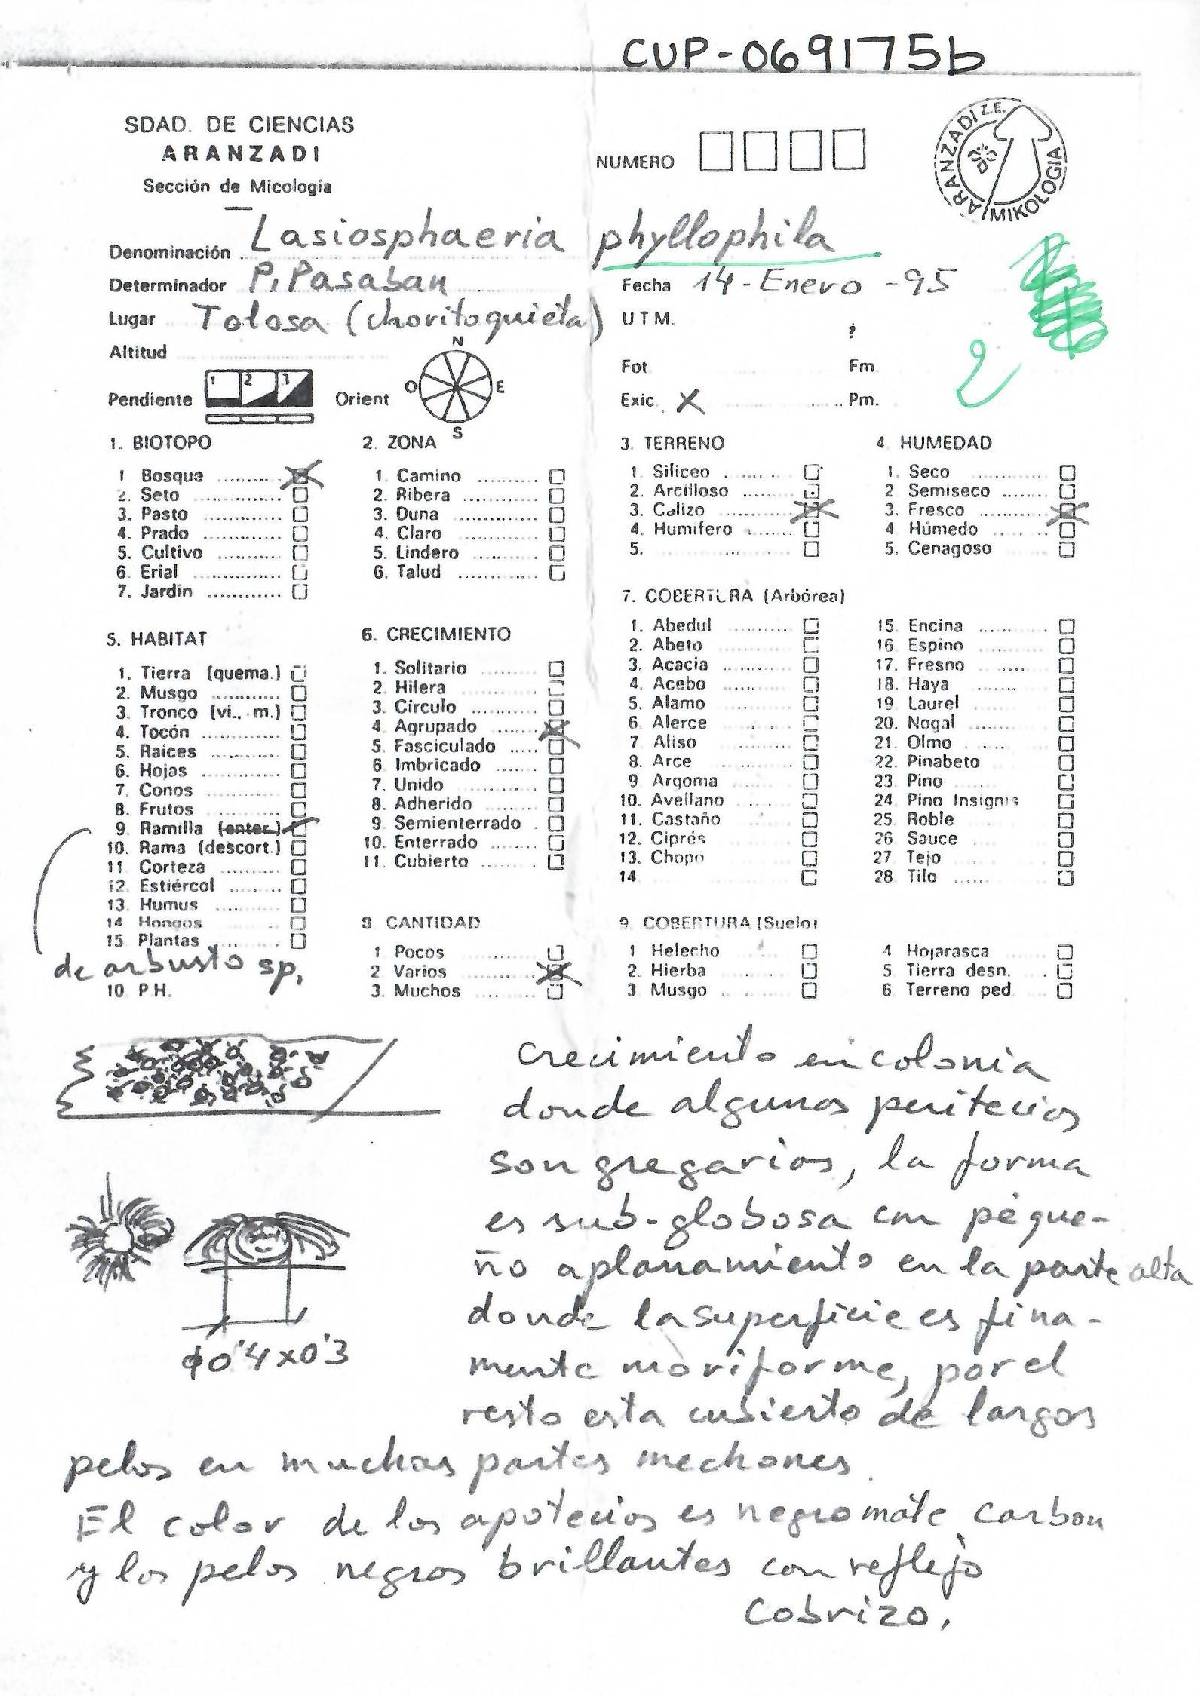 CUP-069175b
SDAD. DE CIENCIAS
ARANZADI
Sección de Micología
NUMERO
ARANZADI Z.E.
MIKOLOGIA
Denominación Lasiosphaeria phyllophila
Determinador P. Pasaban
Fecha 14-Enero-95
Lugar Tolosa (Choritoquieta)
U T M.
Altitud
?
Fot Fm
Pendiente 1 2 3
Orient N E S O
Exic. X Pm.
2
1. BIOTOPO
1 Bosque
2. Seto
3. Pasto
4. Prado
5. Cultivo
6. Erial
7. Jardín
2. ZONA
1. Camino
2. Ribera
3. Duna
4. Claro
5. Lindero
6. Talud
3. TERRENO
1. Siliceo
2. Arcilloso
3. Calizo
4. Humífero
5.
4 HUMEDAD
1. Seco
2 Semiseco
3. Fresco
4. Húmedo
5. Cenagoso
5. HABITAT
1. Tierra (quema.)
2. Musgo
3. Tronco (vi., m.)
4. Tocón
5. Raices
6. Hojas
7. Conos
8. Frutos
9. Ramilla (enter.)
10. Rama (descort.)
11 Corteza
12. Estiércol
13. Humus
14 Hongos
15. Plantas
de arbusto sp.
10. P.H.
6. CRECIMIENTO
1. Solitario
2. Hilera
3. Círculo
4. Agrupado
5. Fasciculado
6. Imbricado
7. Unido
8. Adherido
9. Semienterrado
10. Enterrado
11. Cubierto
7. COBERTURA (Arbórea)
1. Abedul
2. Abeto
3. Acacia
4. Acebo
5. Alamo
6. Alerce
7. Aliso
8. Arce
9 Argoma
10. Avellano
11. Castaño
12. Ciprés
13. Chopo
14
15. Encina
16. Espino
17. Fresno
18. Haya
19. Laurel
20. Nogal
21. Olmo
22. Pinabeto
23. Pino
24. Pino Insignis
25. Roble
26 Sauce
27 Tejo
28 Tilo
8 CANTIDAD
1 Pocos
2 Varios
3. Muchos
9. COBERTURA (Suelo)
1 Helecho
2. Hierba
3 Musgo
4 Hojarasca
5 Tierra desn.
6 Terreno ped
Crecimiento en colonia
donde algunos peritecios
son gregarios, la forma
es sub-globosa con peque-
ño aplanamiento en la parte alta
donde la superficie es fina-
mente moriforme, por el
resto esta cubierto de largos
pelos en muchas partes mechones.
El color de los apotecios es negro mate carbon
y los pelos negros brillantes con reflejo
cobrizo.
ϕ0'4x0'3